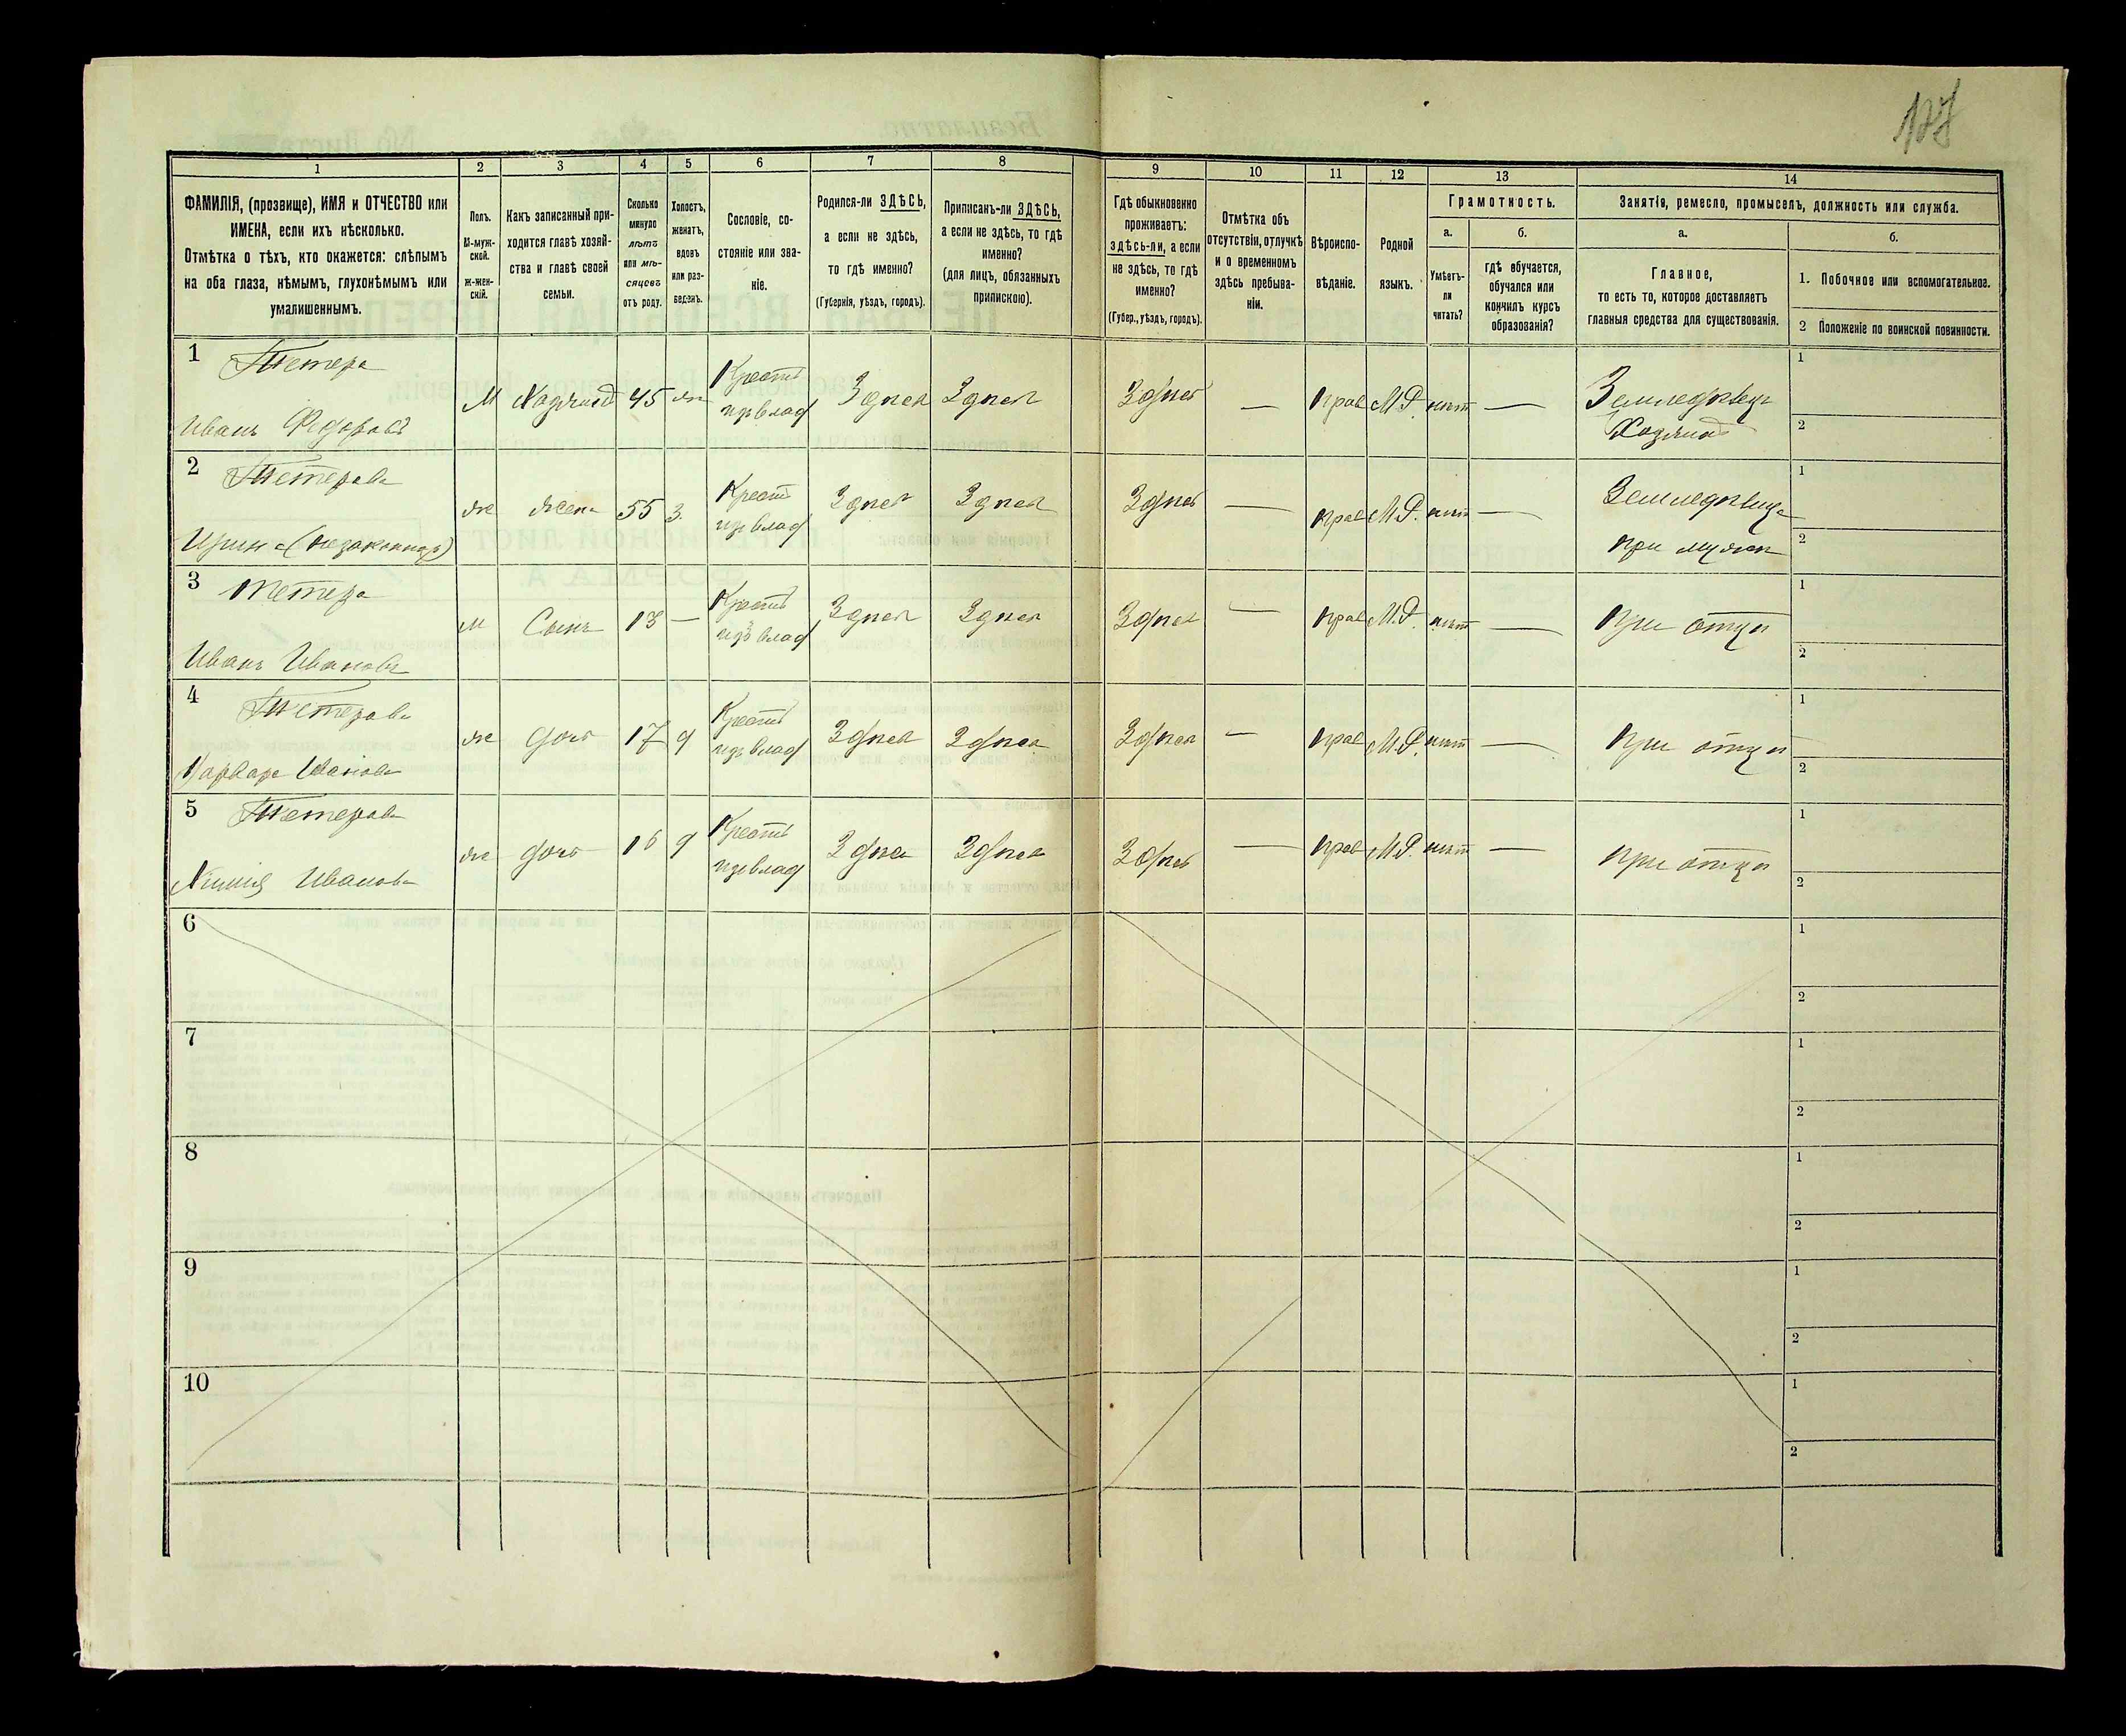 127
1
2
3
4
5
6
7
8
ФАМИЛІЯ, (прозвище), ИМЯ и ОТЧЕСТВО или
ИМЕНА, если ихъ нѣсколько.
Отмѣтка о тѣхъ, кто окажется: слѣпымъ
на оба глаза, нѣмымъ, глухонѣмымъ или
умалишеннымъ.
Полъ.
М-муж-
ской.
ж-жен-
скій.
Какъ записанный при-
ходится главѣ хозяй-
ства и главѣ своей
семьи.
Сколько
минуло
лѣтъ
или мѣ-
сяцевъ
отъ роду.
Холостъ,
женатъ,
вдовъ
или раз-
веденъ.
Сословіе, со-
стояніе или зва-
ніе.
Родился-ли ЗДѢСЬ,
а если не здѣсь,
то гдѣ именно?
(Губернія, уѣздъ, городъ).
Приписанъ-ли ЗДѢСЬ,
а если не здѣсь, то гдѣ
именно?
(для лицъ, обязанныхъ
припискою).
9
10
11
12
13
14
Гдѣ обыкновенно
проживаетъ:
здѣсь-ли, а если
не здѣсь, то гдѣ
именно?
(Губер., уѣздъ, городъ).
Отмѣтка объ
отсутствіи, отлучкѣ
и о временномъ
здѣсь пребыва-
ніи.
Вѣроиспо-
вѣданіе.
Родной
языкъ.
Грамотность.
а.
Умѣетъ-
ли
читать?
б.
гдѣ обучается,
обучался или
кончилъ курсъ
образованія?
Занятіе, ремесло, промыселъ, должность или служба.
а.
Главное,
то есть то, которое доставляетъ
главныя средства для существованія.
б.
1. Побочное или вспомогательное.
2 Положеніе по воинской повинности.
1 Тетера
Иванъ Федоровъ
М Хозяинъ 45 ж
Крестъ
изъ влад
Здѣсь Здѣсь
Здѣсь — Прав М.Р. нѣтъ —
Земледѣлецъ
Хозяинъ
1
2
2 Тетерова
Ирина (незаконнор)
Ж Жена 55 З.
Крест
изъ влад
Здѣсь Здѣсь
Здѣсь — Прав М.Р. нѣт —
Земледѣлица
при мужѣ
1
2
3 Тетера
Иванъ Ивановъ
М Сынъ 13 —
Крестъ
изъ влад
Здѣсь Здѣсь
Здѣсь — Прав М.Р. нѣт —
При отцѣ
1
2
4 Тетерова
Варвара Иванова
Ж дочь 17 д
Крестъ
изъ влад
Здѣсь Здѣсь
Здѣсь — Прав М.Р. нѣт —
При отцѣ
1
2
5 Тетерова
Иванова
Ж дочь 16 д
Крестъ
изъ влад
Здѣсь Здѣсь
Здѣсь — Прав М.Р. нѣт —
при отцѣ
1
2
6
1
2
7
1
2
8
1
2
9
1
2
10
1
2